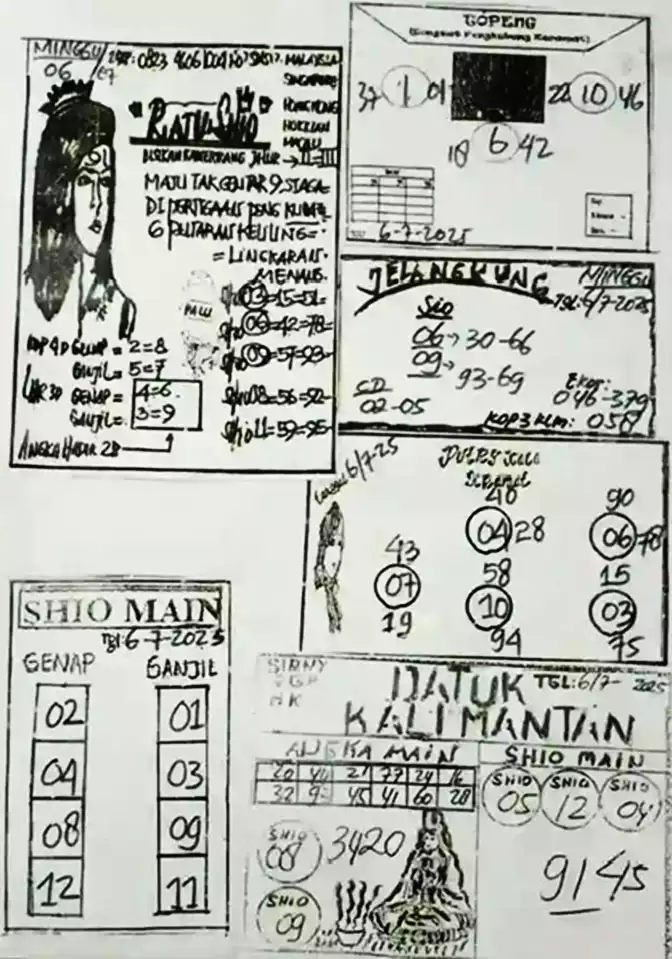 MINGGU
06/07
"RATU SHIO"
MALAYSIA
SINGAPORE
HONGKONG
MACAU
II=III
MAJU TAK GENTAR 9 STAGE
DI PERTIGAAN PENG KUM
6 PUTARAN KELILING=
=LINGKARAN
MENANG
03=15=51=
06=42=78=
09=57=93=
Shio 08=56=92=
Shio 11=59=95=
MW
KOP 4D GENAP = 2=8
GANJIL = 5=7
GENAP = 4=6
GANJIL = 3=9
ANGKA HASIR 2D
GOPENG
37 1 01
22 10 46
18 6 42
6-7-2025
JELANGKUNG
MINGGU
TGL: 6/7-2025
Sio
06 → 30-66
09 → 93-69
CD
02-05
Ekor:
046-379
KOP 3 KLM: 058
6/7-25
40
04 28
58
10
94
43
07
19
90
06 78
15
03
75
SHIO MAIN
Tgl: 6-7-2025
GENAP
GANJIL
02 01
04 03
08 09
12 11
SIDNY
SGP
HK
DATUK
TGL: 6/7- 2025
KALIMANTAN
ANGKA MAIN
20 27 77 24 16
32 45 41 60 28
SHIO
08
3420
SHIO
09
SHIO MAIN
SHIO 05
SHIO 12
SHIO 04
9145